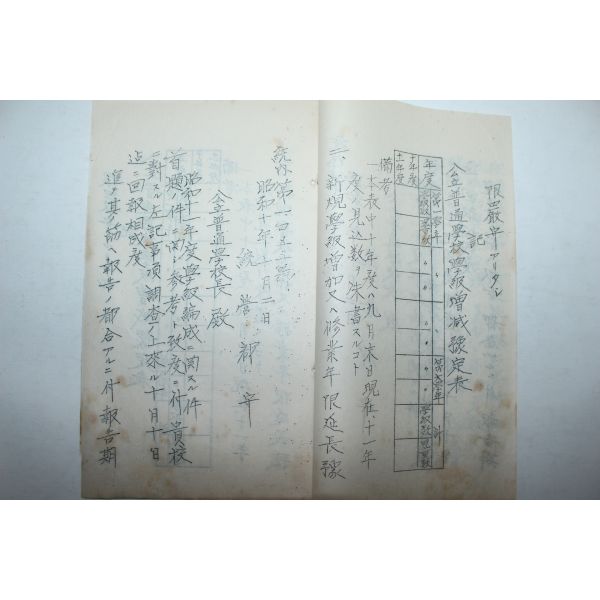 限嚴守アリタシ
記
公立普通學校學級增減豫定表
年度
學級數
兒童數
計
學級數
兒童數
十年度
十一年度
備考
一本表中十年度ハ九月末日現在十一年
度ハ見込數ヲ朱書スルコト
二、新規學級增加又ハ修業年限延長豫
昭和十年十月二日
統營郡守
公立普通學校長殿
昭和十一年度學級編成ニ関スル件
首題ノ件ニ関シ參考ト致度ニ付貴校
ニ對スル左記事項調査ノ上來ル十月十日
迄ニ回報相成度
追テ其ノ筋ヘ報告ノ都合アルニ付報告期